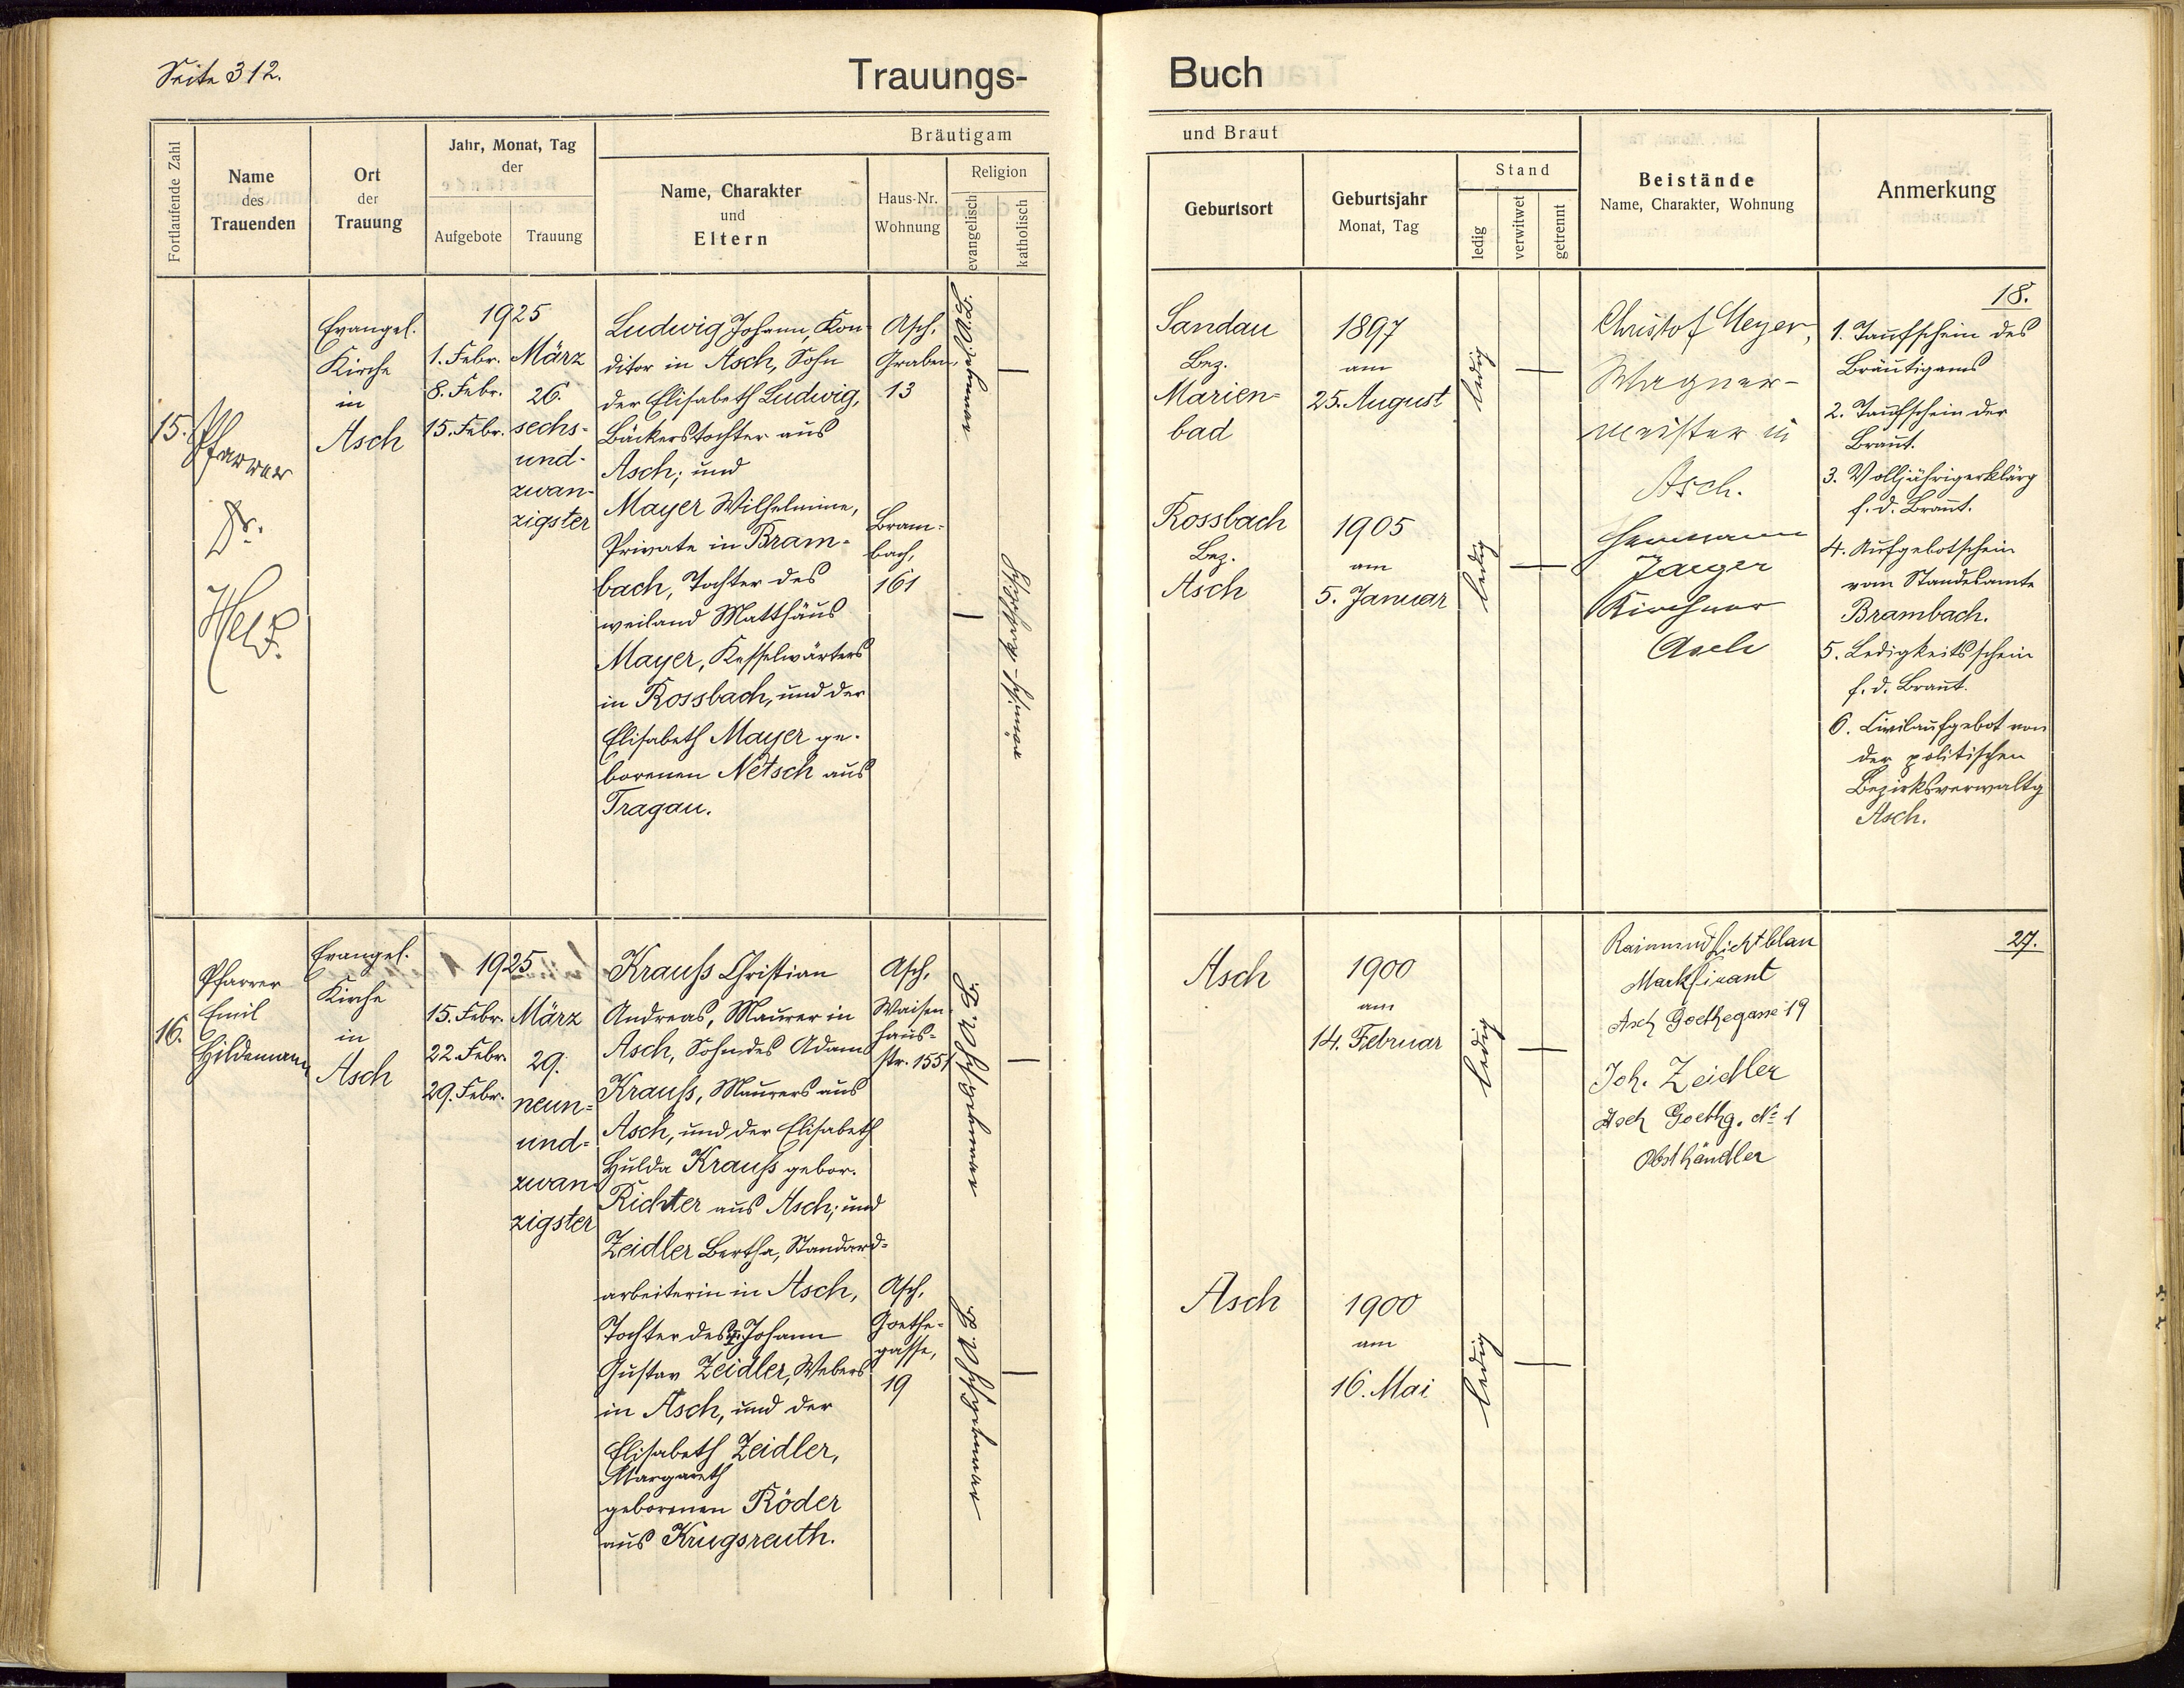 Seite 312.
Trauungs-
Buch
Fortlaufende Zahl
Name
des
Trauenden
Ort
der
Trauung
Jahr, Monat, Tag
der
Aufgebote
Trauung
Bräutigam
Name, Charakter
und
Eltern
Haus-Nr.
Wohnung
Religion
evangelisch
katholisch
und Braut
Geburtsort
Geburtsjahr
Monat, Tag
Stand
ledig
verwitwet
getrennt
Beistände
Name, Charakter, Wohnung
Anmerkung
15.
Pfarrer
Dr.
Held.
Evangel.
Kirche
in
Asch
1925
1. Febr.
8. Febr.
15. Febr.
März
26.
sechs-
und-
zwan-
zigster
Ludwig Johann, Kon-
ditor in Asch, Sohn
der Elisabeth Ludwig,
Bäckerstochter aus
Asch; und
Mayer Wilhelmine,
Private in Bram-
bach, Tochter des
weiland Matthäus
Mayer, Kesselwärters
in Rossbach, und der
Elisabeth Mayer ge-
borenen Netsch aus
Tragau.
Asch,
Graben,
13
Bram-
bach,
161
Sandau
Bez.
Marien-
bad
1897
am
25. August
ledig
Rossbach
Bez.
Asch
1905
am
5. Januar
ledig
Christof Meyer,
Wagner-
meister in
Asch.
Hermann
Jaeger
Kirchner
Asch
18.
1. Taufschein des
Bräutigams
2. Taufschein der
Braut.
3. Volljährigerklärg
f. d. Braut.
4. Aufgebotschein
vom Standesamte
Brambach.
5. Ledigkeitsschein
f. d. Braut.
6. Civilaufgebot von
der politischen
Bezirksverwaltg
Asch.
16.
Pfarrer
Emil
Hildemann
Evangel.
Kirche
in
Asch
1925
15. Febr.
22. Febr.
29. Febr.
März
29.
neun-
und-
zwan-
zigster
Krauß Christian
Andreas, Maurer in
Asch, Sohn des Adam
Krauß, Maurers aus
Asch, und der Elisabeth
Hulda Krauß gebor.
Richter aus Asch; und
Zeidler Bertha, Standard-
arbeiterin in Asch,
Tochter des Johann
Gustav Zeidler, Webers
in Asch, und der
Elisabeth Zeidler,
Margareth
geborenen Röder
aus Krugsreuth.
Asch,
Waisen-
haus-
str. 1551
Asch,
Goethe-
gasse,
19
Asch
1900
am
14. Februar
ledig
Asch
1900
am
16. Mai
ledig
Raimund Lichtblau
Markfirant
Asch Goethegasse 19
Joh. Zeidler
Asch Goethg. No 1
Obsthändler
27.